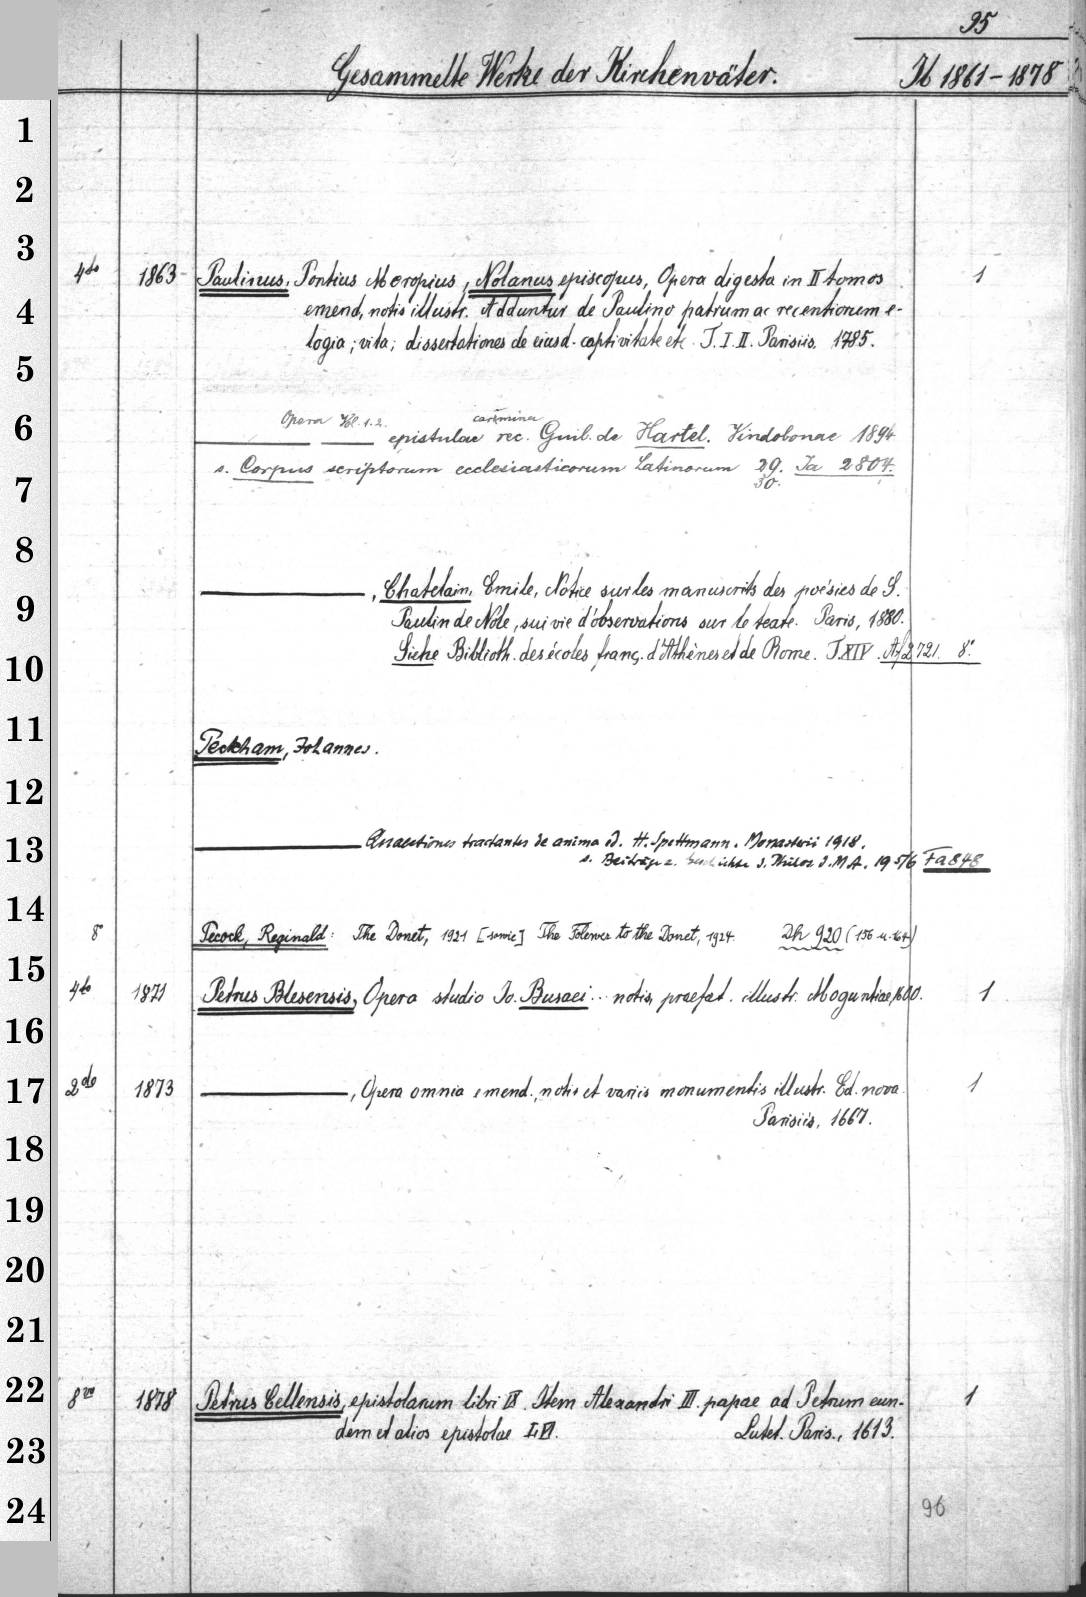 95
Gesammelte Werke der Kirchenväter. Ib 1861-1878
1
2
3
4to 1863 Paulinus, Pontius Meropius, Nolanus episcopus, Opera digesta in II tomos 1
4 emend, notis illustr. Adduntur de Paulino patrum ac recentiorum e-
logia; vita; dissertationes de eiusd. captivitate etc. T. I. II. Parisiis. 1785.
5
Opera Vol. 1. 2. carmina
6 epistulae rec. Guil. de Hartel. Vindobonae 1894
s. Corpus scriptorum ecclesiasticorum Latinorum 29. Ia 2804.
7 30.
8
9 , Chatelain, Emile, Notice sur les manuscrits des poésies de S.
Paulin de Nole, suivie d'observations sur le texte. Paris, 1880.
10 Siehe Biblioth. des écoles franç. d'Athènes et de Rome. T. XIV. Af 2721. 8°.
11
Peckham, Johannes.
12
13 Quaestiones tractantes de anima ed. H. Spettmann. Monasterii 1918.
s. Beiträge z. Geschichte d. Philos d. M.A. 19 5/6 Fa 848
14
8° Pecock, Reginald: The Donet, 1921 [sowie] The Folewer to the Donet, 1924. Dh 920 (156 u. 164)
15
4to 1871 Petrus Blesensis, Opera studio Jo. Busaei.. notis, praefat. illustr. Moguntiae, 1600. 1
16
17 2do 1873 , Opera omnia emend., notis et variis monumentis illustr. Ed. nova. 1
Parisiis, 1667.
18
19
20
21
22 8vo 1878 Petrus Cellensis, epistolarum libri IX. Item Alexandri III. papae ad Petrum eun- 1
23 dem et alios epistolae LVI. Lutet. Paris., 1613.
24 96